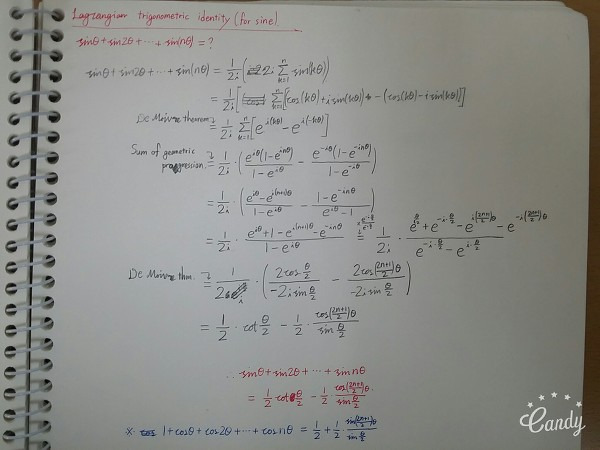 Lagrangian trigonometric identity (for sine)
sinθ + sin2θ + ⋯ + sin(nθ) = ?
sinθ + sin2θ + ⋯ + sin(nθ) = 1/2i (2i ∑_{k=1}^{n} sin(kθ))
= 1/2i [∑_{k=1}^{n} [(cos(kθ) + i sin(kθ)) - (cos(kθ) - i sin(kθ))]]
De Moivre theorem = 1/2i ∑_{k=1}^{n} [e^{i(kθ)} - e^{i(-kθ)}]
Sum of geometric progression. = 1/2i · (e^{iθ}(1-e^{inθ})/(1-e^{iθ}) - e^{-iθ}(1-e^{-inθ})/(1-e^{-iθ}))
= 1/2i · ((e^{iθ}-e^{i(n+1)θ})/(1-e^{iθ}) - (1-e^{-inθ})/(e^{iθ}-1))
= 1/2i · (e^{iθ}+1-e^{i(n+1)θ}-e^{-inθ})/(1-e^{iθ}) = 1/2i · (e^{i θ/2}+e^{-i·θ/2}-e^{i(2n+1)/2 θ}-e^{-i(2n+1)/2 θ})/(e^{-i·θ/2}-e^{i·θ/2})
De Moivre thm. = 1/2i · (2cos θ/2 / -2i sin θ/2 - 2cos((2n+1)/2)θ / -2i sin θ/2)
= 1/2 · cot θ/2 - 1/2 · cos((2n+1)/2)θ / sin θ/2
∴ sinθ + sin2θ + ⋯ + sin nθ
= 1/2 cot θ/2 - 1/2 · cos((2n+1)/2)θ / sin θ/2
※ 1 + cosθ + cos2θ + ⋯ + cos nθ = 1/2 + 1/2 · sin((2n+1)/2)θ / sin θ/2
Candy